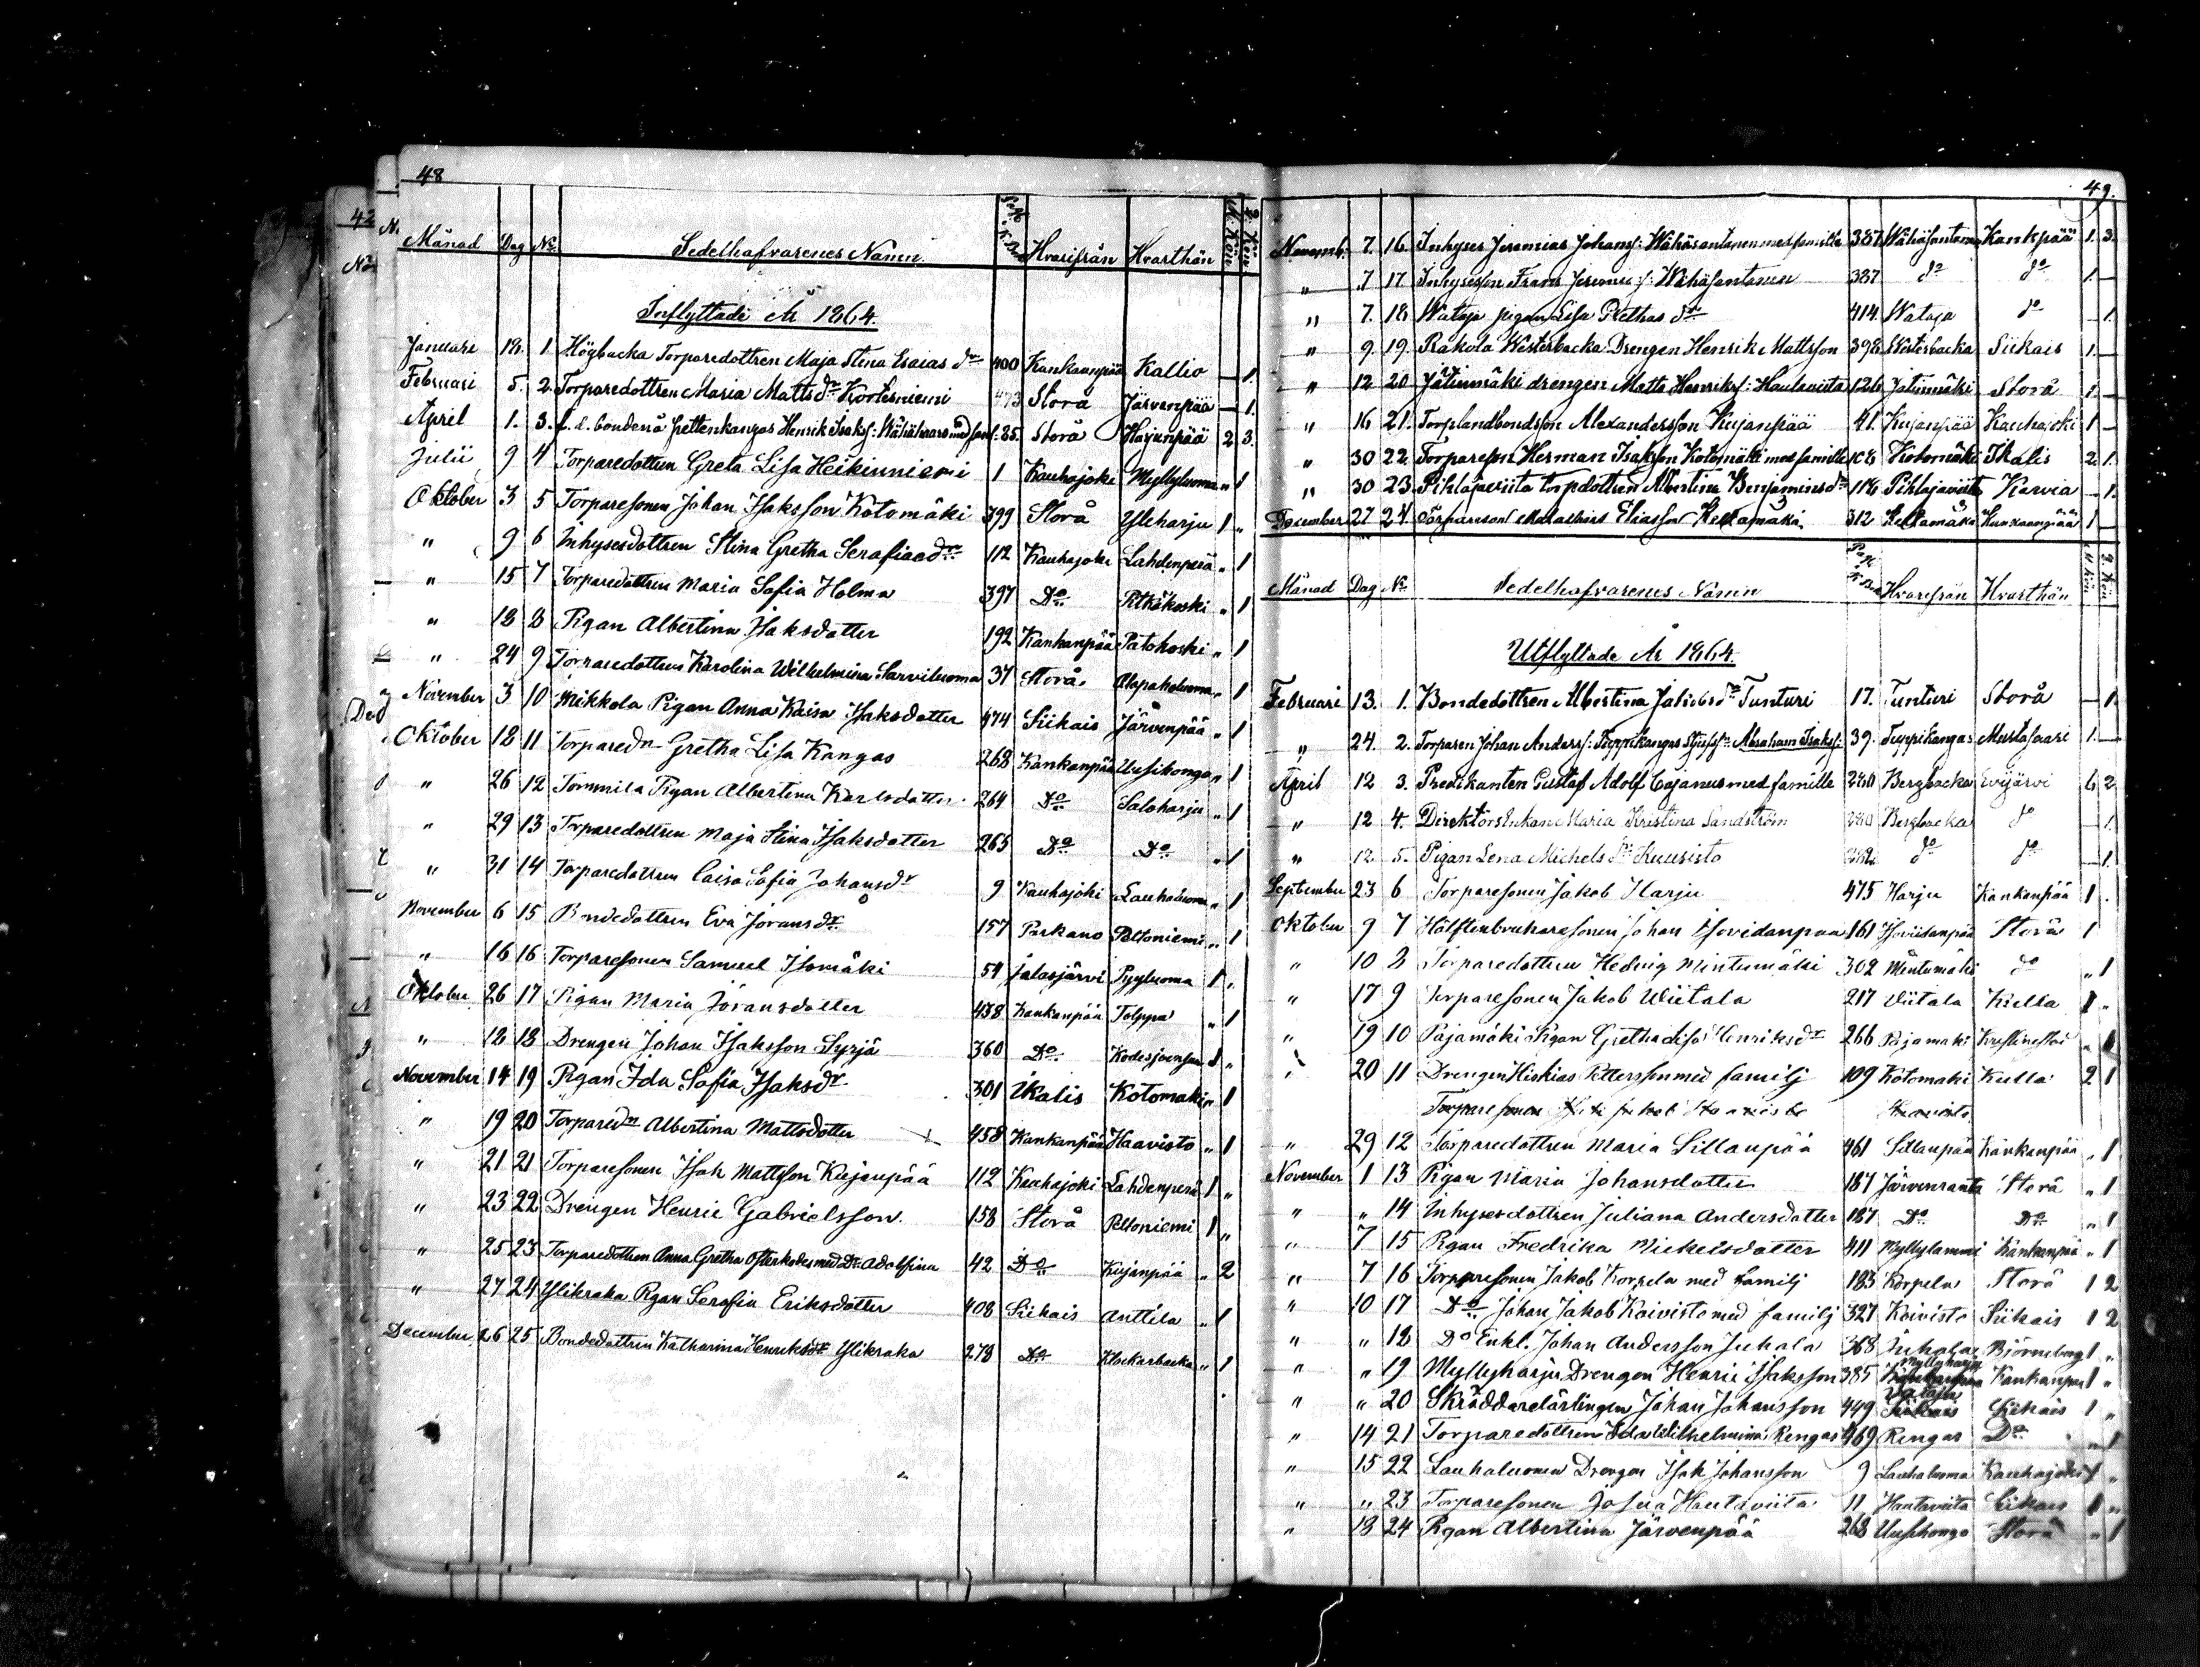 48
Månad Dag No Sedelhafvarenes Namn Pag. K. Bok Hvarifrån Hvarthän M. Kön Q. Kön
Inflyttade År 1864.
Januari 18. 1. Högbacka Torparedottren Maja Stina Esaias dr 400 Kankaanpää Kallio — 1.
Februari 5. 2. Torparedottren Maria Matts dr Kortesniemi 473 Storå Järvenpää — 1.
April 1. 3. f. d. bonden å Hettenkangas Henrik Isaks: Wähähaara med fam: 85. Storå Harjunpää 2 3.
Julii 9 4 Torparedottren Greta Lisa Heikinniemi 1 Kauhajoki Myllyluoma " 1
Oktober 3 5 Torparesonen Johan Isaksson Kotomäki 399 Storå Yliharju 1 "
" 9 6 Inhysesdottren Stina Gretha Serafiasdr 112 Kauhajoki Lahdenperä " 1
" 15 7 Torparedottren Maria Sofia Holma 397 Do Pitkäkoski " 1
" 18 8 Pigan Albertina Isaksdotter 192 Kankanpää Patokoski " 1
" 24 9 Torparedottren Karolina Wilhelmina Sarviluoma 37 Storå Alapakoluoma " 1
November 3 10 Mikkola Pigan Anna Kaisa Isaksdotter 474 Siikais Järvenpää " 1
Oktober 18 11 Torparedn Gretha Lisa Kangas 268 Kankanpää Uusikongo " 1
" 26 12 Tommila Pigan Albertina Karlsdotter 264 Do Saloharju " 1
" 29 13 Torparedottren Maja Stina Isaksdotter 265 Do Do " 1
" 31 14 Torparedottren Caisa Sofia Johansdr 9 Kauhajoki Lauhaluoma " 1
November 6 15 Bondedottren Eva Jöransdr 157 Parkano Peltoniemi " 1
" 16 16 Torparesonen Samuel Isomäki 54 Jalasjärvi Pyyluoma 1 "
Oktober 26 17 Pigan Maria Jöransdotter 438 Kankanpää Tolppa " 1
" 18 18 Drengen Johan Isaksson Syrjä 360 Do Kodesjoensuu 1 "
November 14 19 Pigan Ida Sofia Isaksdr 301 Ikalis Kotomaki " 1
" 19 20 Torparedn Albertina Mattsdotter 458 Kankanpää Haavisto " 1
" 21 21 Torparesonen Isak Mattsson Kujanpää 112 Kauhajoki Lahdenperä 1 "
" 23 22 Drengen Henric Gabrielsson 158 Storå Peltoniemi 1 "
" 25 23 Torparedottren Anna Gretha Ofterkoski med Dr Adolfina 42 Do Kujanpää " 2
" 27 24 Ylikraka Pigan Serafia Eriksdotter 408 Siikais Anttila " 1
December 26 25 Bondedottren Katharina Henriksdr Ylikraka 278 Do Klockarbacka " 1
49.
Novemb: 7. 16. Inhyses Jeremias Johans: Wähäsantanen med familie 387. Wähäsantanen Kankpää 1. 3.
" 7 17. Inhysesson Frans Jeremias: Wähäsantanen 387 do do 1. —
" 7. 18. Wataja pigan Lisa Prethas dr 414. Wataja do — 1.
" 9 19. Rakola Westerbacka Drengen Henrik Mattsson 398 Westerbacka Siikais 1. —
" 12 20. Jätinmäki drengen Matts Henriks: Hautaviita 126 Jätinmäki Storå 1. —
" 16 21. Torplandbondsson Alexandersson Kujanpää 41. Kujanpää Kauhajoki 1 —
" 30 22. Torpareson Herman Isaksson Kotomäki med familie 108 Kotomäki Ikalis 2. 1.
" 30 23. Pihlajaviita torpdottren Albertina Benjaminsdr 116 Pihlajaviita Karvia — 1.
December 27 24 Torpareson Malachias Eliasson Keltamäki 312 Keltamäki Kankaanpää 1 —
Månad Dag No Sedelhafvarenes Namn Pag. K. Bok Hvarifrån Hvarthän M. Kön Q. Kön
Utflyttade År 1864.
Februari 13. 1. Bondedottren Albertina Jakobs dr Tunturi 17. Tunturi Storå — 1.
" 24. 2. Torparen Johan Anders: Teppikangas Styfs: Abraham Isaks: 39. Teppikangas Mustasaari 1. —
April 12 3. Predikanten Gustaf Adolf Cajanus med famille 280 Bergbacka Evijärvi 6 2
" 12 4. Direktörs Enkan Maria Kristina Sandström 280 Bergbacka do — 1.
" 12 5. Pigan Lena Michels dr Kuusisto do do — 1.
September 23 6 Torparesonen Jakob Harju 475 Harju Kankanpää 1 .
Oktober 9 7 Hälftenbrukaresonen Johan Hovidanpaa 161 Hovidanpää Storå 1
" 10 8 Torparedottren Hedvig Mintumäki 302 Mintumäki do " 1
" 17 9 Torparesonen Jakob Wiitala 217 Viitala Kulla 1 "
" 19 10 Pajamäki Pigan Gretha Lisa Henriksdr 266 Pajamaki Kristinestad " 1
" 20 11 Drengen Hiskias Pettersson med familj 109 Kotomaki Kulla 2 1
Torparesonen
" 29 12 Torparedottren Maria Sillanpää 461 Sillanpää Kankanpää " 1
November 1 13 Pigan Maria Johansdotter 187 Järvenranta Storå " 1
" " 14 Inhysesdottren Juliana Andersdotter 187 Do Do " 1
" 7 15 Pigan Fredrika Mickelsdotter 411 Myllylammi Kankanpää " 1
" 7 16 Torparesonen Jakob Korpela med Familj 183 Korpela Storå 1 2
" 10 17 Do Johan Jakob Koivisto med familj 327 Koivisto Siikais 1 2
" " 18 Do Enkl. Johan Andersson Juhala 368 Juhala Björneborg 1 "
" " 19 Myllyharju Drengen Henric Isaksson 385 Myllyharju Kankanpää 1 "
" " 20 Skräddarelärlingen Johan Johansson 449 Vataja Siikais 1 "
" 14 21 Torparedottren Ida Wilhelmina Rengas 469 Rengas Do " 1
" 15 22 Lauhaluoma Drengen Isak Johansson 9 Lauhaluoma Kauhajoki 1 "
" " 23 Torparesonen Josua Hautaviita 11 Hautaviita Siikais 1 "
" 18 24 Pigan Albertina Järvenpää 268 Uusikongo Storå " 1